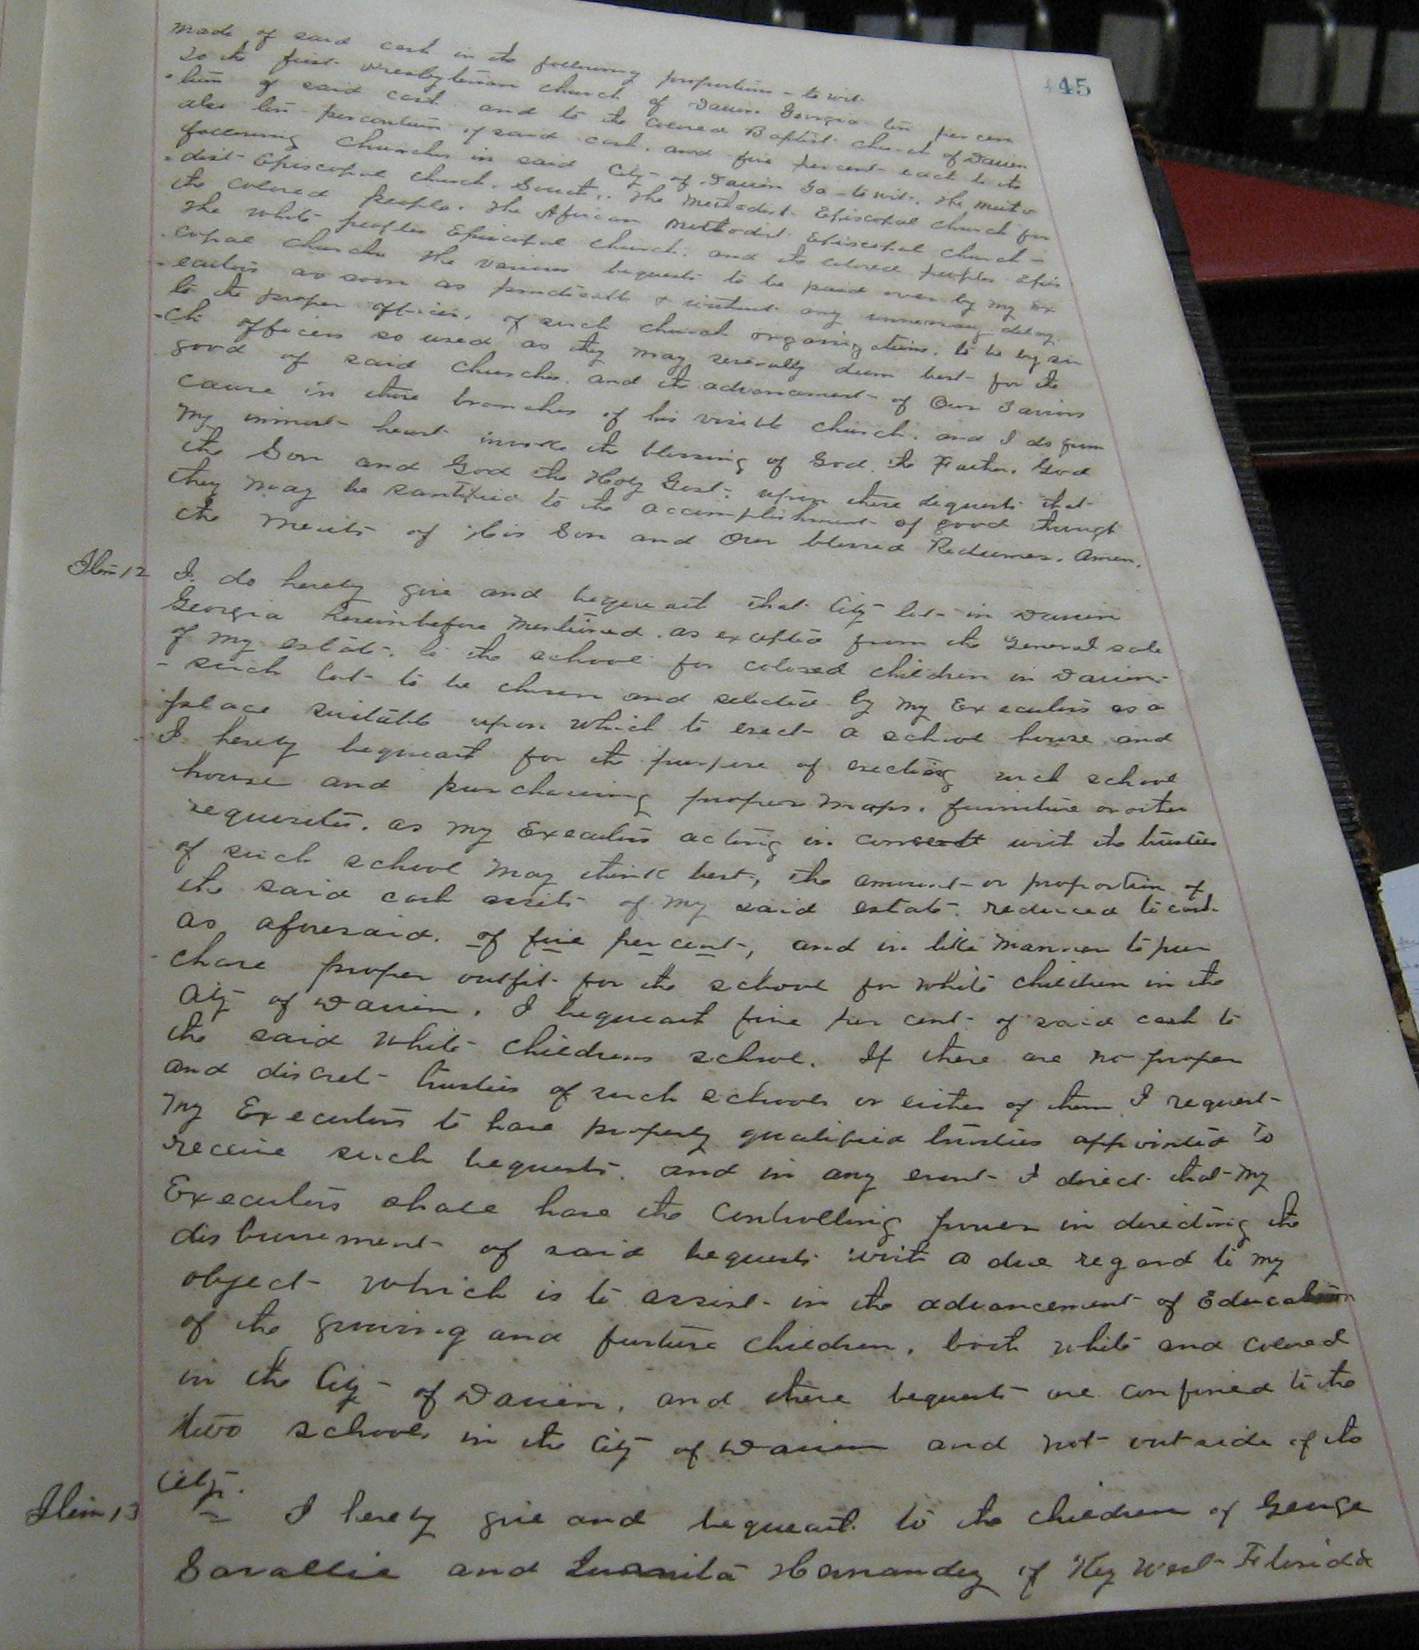 445
made of said cash in the following proportions - to wit
To the first Presbyterian Church of Darien Georgia ten per cen
-tum of said cash and to the Colored Baptist Church of Darien
also ten percentum of said cash. and five percent each to the
following Churches in said City of Darien Ga - to wit. The Metho
-dist Episcopal Church. South. The Methodist Episcopal Church for
the colored people. The African Methodist Episcopal Church -
The white peoples Episcopal Church. and the colored peoples Epis
-copal Church. The various bequests to be paid over by my Ex
-ecutors as soon as practicable & without any unnecessary delay
to the proper officers. of such church organizations. to be by su
-ch officers so used as they may severally deem best for the
good of said Churches. and the advancement of Our Saviors
cause in these branches of his visible church. and I do from
my inmost heart invoke the blessing of God. the Father. God
the Son and God the Holy Gost. upon these bequests that
they may be santified to the accomplishment of good through
the merits of His Son and Our blessed Redeemer. Amen.
Item 12 I. do hereby give and bequeath that City lot in Darien
Georgia hereinbefore mentioned. as excepted from the General sale
of my estate. to the school for colored children in Darien-
- such lot to be chosen and selected by my Executors as a
place suitable upon which to erect a school house and
I hereby bequeath for the purpose of erecting such school
house and purchasing proper maps. furniture or other
requisites. as my Executors acting in consert with the trustees
of such school may think best, the amount or proportion of
the said cash assets of my said estate. reduced to cash
as aforesaid. of five per cent, and in like manner to pur
-chase proper outfit for the school for white children in the
City of Darien. I bequeath five per cent of said cash to
the said white childrens school. If there are no proper
and discret trustees of such schools or either of them I request
my Executors to have properly qualified trustees appointed to
receive such bequests. and in any event I direct that my
Executors shall have the controlling power in directing the
disbursement of said bequests with a due regard to my
object which is to assist in the advancement of Education
of the growing and furture children. both white and colored
in the City of Darien, and these bequests are confined to the
two schools in the City of Darien and not outside of the
City.
Item 13 I hereby give and bequeath to the children of George
Savallie and Juanita Hernandez of Key West Florida